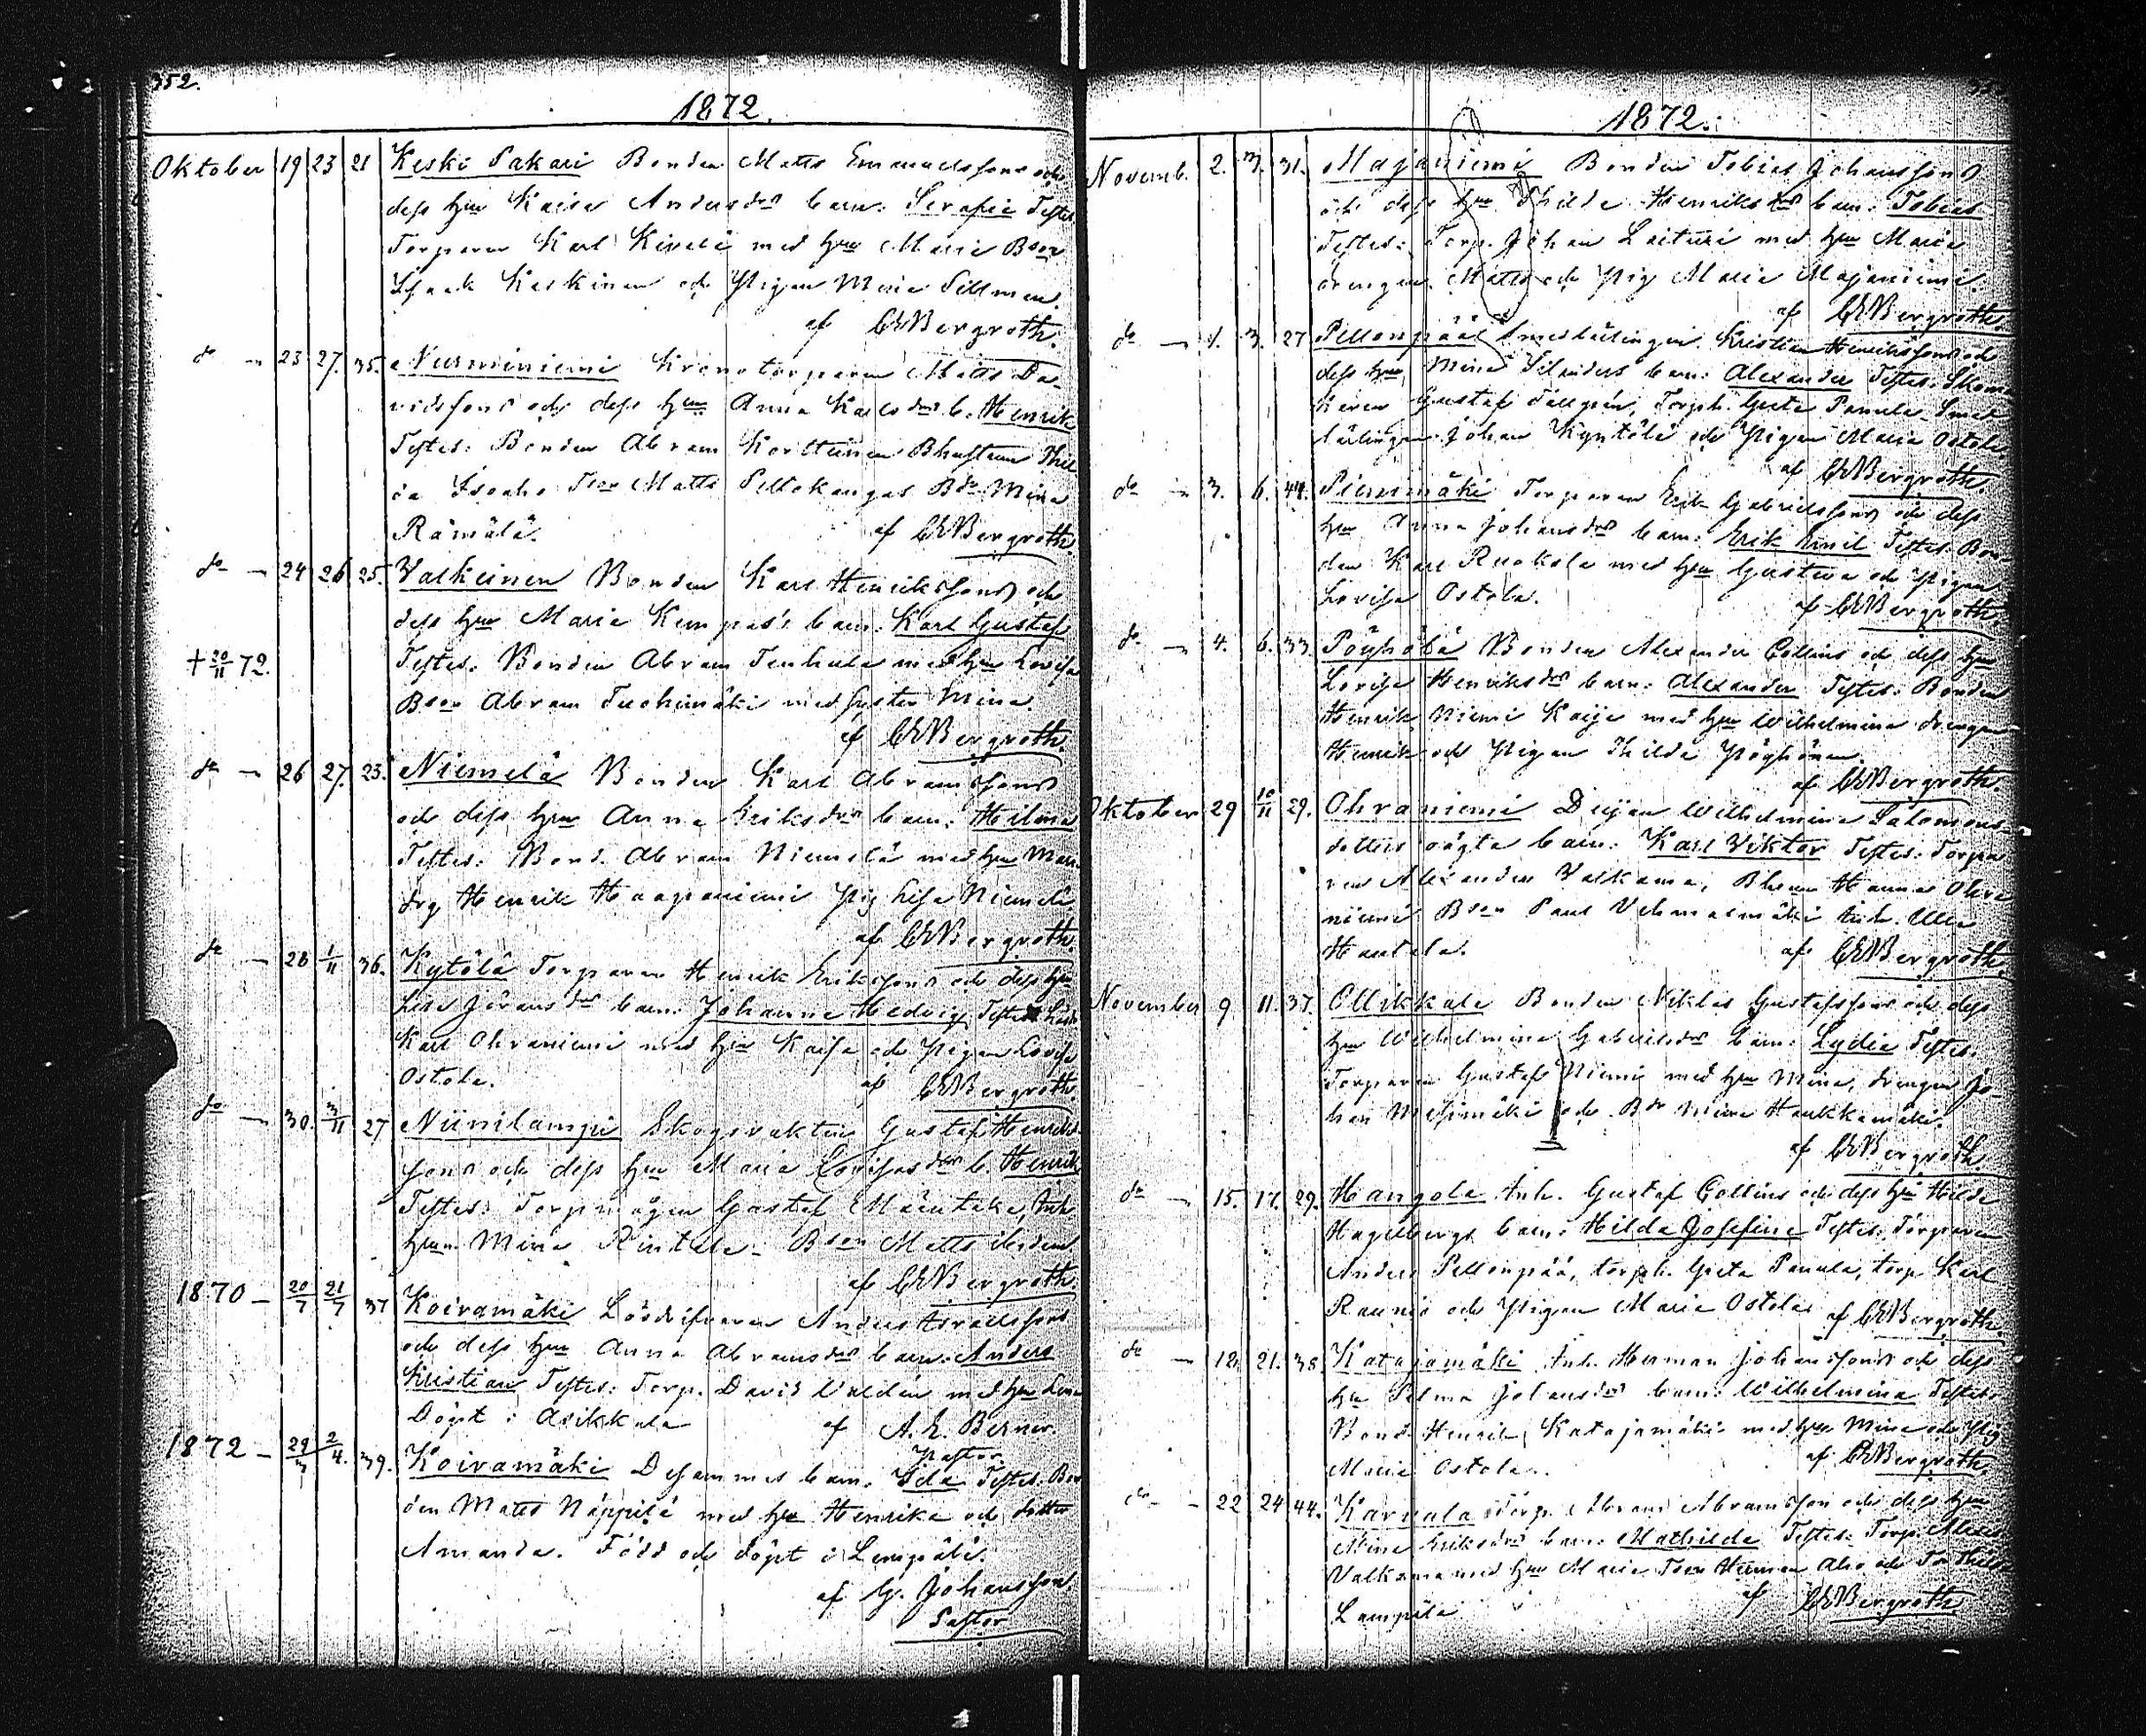 352.
1872.
Oktober 19 23 21 Keski Pakari Bonden Matts Emanuelssons och
dess hru Kaisa Andersdrs barn: Serafia Testes
Torparen Karl Kivelä med hru Maria Bson
Isaak Keskinen och Pigan Maria Sillman.
af CEBergroth.
do — 23 27. 35. Nurminiemi Kronotorparen Matts Da-
vidssons och dess hru Anna Karlsdrs b. Henrik
Testes: Bonden Abram Korttinen Bhustrun Thil
da Isoaho Tson Matts Peltokangas Bdr Mina
Rämälä. af CEBergroth.
do — 24 26 25. Valkeinen Bonden Karl Henrikssons och
dess hru Maria Kempas's barn: Karl Gustaf
† 20/11 72. Testes: Bonden Abram Tenhula med hru Lovisa
Bson Abram Tuohimäki med syster Mina.
af CEBergroth.
do — 26 27. 23. Niemelä Bonden Karl Abramssons
och dess hru Anna Eriksdrs barn: Hilma
Testes: Bond. Abram Niemelä med hru Maria
drg Henrik Haapaniemi Pig Lisa Niemelä.
af CEBergroth.
do — 28 1/11 36. Kytölä Torparen Henrik Erikssons och dess hru
Lisa Jöransdrs barn: Johanna Hedvig Testes:
Karl Ohraniemi med hru Kaisa och Pigan Lovisa
Ostola. af CEBergroth
do — 30. 3/11 27 Niinilampi Skogsvaktin Gustaf Henriks-
sons och dess hru Maria Lovisasdrs b. Henrik
Testes: Torpmågen Gustaf Mäentaka, Inh.
hrun Mina Rintala. Bson Matts ibidem
af CEBergroth
1870 — 20/7 21/7 37 Koivamäki Lösdrifvaren Anders Israelssons
och dess hru Anna Abramsdrs barn: Anders
Kristian Testes: Torp. David Valdén med hru Lena
Döpt i Asikkala af A. E. Berner.
Pastor
1872 — 29/3 2/4. 39. Koivamäki Desammes barn. Ida Testes: Bon
den Matts Näppilä med hru Henrika och dotter
Amanda. Född och döpt i Lempälä.
af G. Johansson.
Pastor
1872.
Novemb. 2. 3. 31. Majaniemi Bonden Tobias Johanssons
och dess hru Thilda Henriksdrs barn: Tobias
Testes: Torp. Johan Laituri med hru Maria
drengen Matts och Pig Maria Majaniemi.
af CEBergroth.
do — 1. 3. 27 Pellonpää Smedlärlingen Kristian Henrikssons och
dess hru Mina Silanders barn: Alexander Testes: Skoma
karen Gustaf Tallgrén, Torph. Greta Panula, Smed
lärlingen Johan Kyntölä och Pigan Maria Ostola
af CEBergroth.
do — 3. 6. 44. Pienimäki Torparen Erik Gabrielssons och dess
hru Anna Johansdrs barn: Erik Emil Testes: Bon-
den Karl Ruokola med hru Gustava och Pigan
Lovisa Ostola. af CEBergroth
do — 4. 6. 33. Pöyhölä Bonden Alexander Collins och dess hru
Lovisa Henriksdrs barn: Alexander Testes: Bonden
Henrik Niemi Kaija med hru Wilhelmina drengen
Henrik och Pigan Thilda Pöyhönen.
af CEBergroth.
Oktober 29 10/11 29. Ohraniemi Dejan Wilhelmina Salomons-
dotters oägta barn: Karl Viktor Testes: Torpa
ren Alexander Valkama, Bhrun Hanna Ohra
niemi Bson Paul Vehmasmäki Inh. Ulla
Hautala. af CEBergroth.
November 9. 11. 37. Ollikkala Bonden Niklas Gustafssons och dess
hru Wilhelmina Gabrielsdrs barn: Lydia Testes:
Torparen Gustaf Niemi med hru Mina, drengen Jo-
han Metsämäki och Bdr Mina Haukkamäki.
af CEBergroth.
do — 15. 17. 29. Hangola Inh. Gustaf Collins och dess hru Hilda
Hagelbergs barn: Hilda Josefina Testes: Torparen
Anders Pellonpää, torph. Greta Panula, torp. Karl
Raunio och Pigan Maria Ostola. af CEBergroth.
do — 12. 21. 38. Katajamäki Inh. Herman Johanssons och dess
hru Selma Johansdrs barn: Wilhelmina Testes:
Bond. Henrik Katajamäki med hru Mina och Pig
Maria Ostola. af CEBergroth.
do — 22 24 44. Karvala Torp. Abram Abramsson och dess hru
Mina Eriksdrs barn: Mathilda Testes: Torp. Alexan
Valkama med hru Maria Tson Herman Aho och Tdr Thilda
Lampila af CEBergroth.